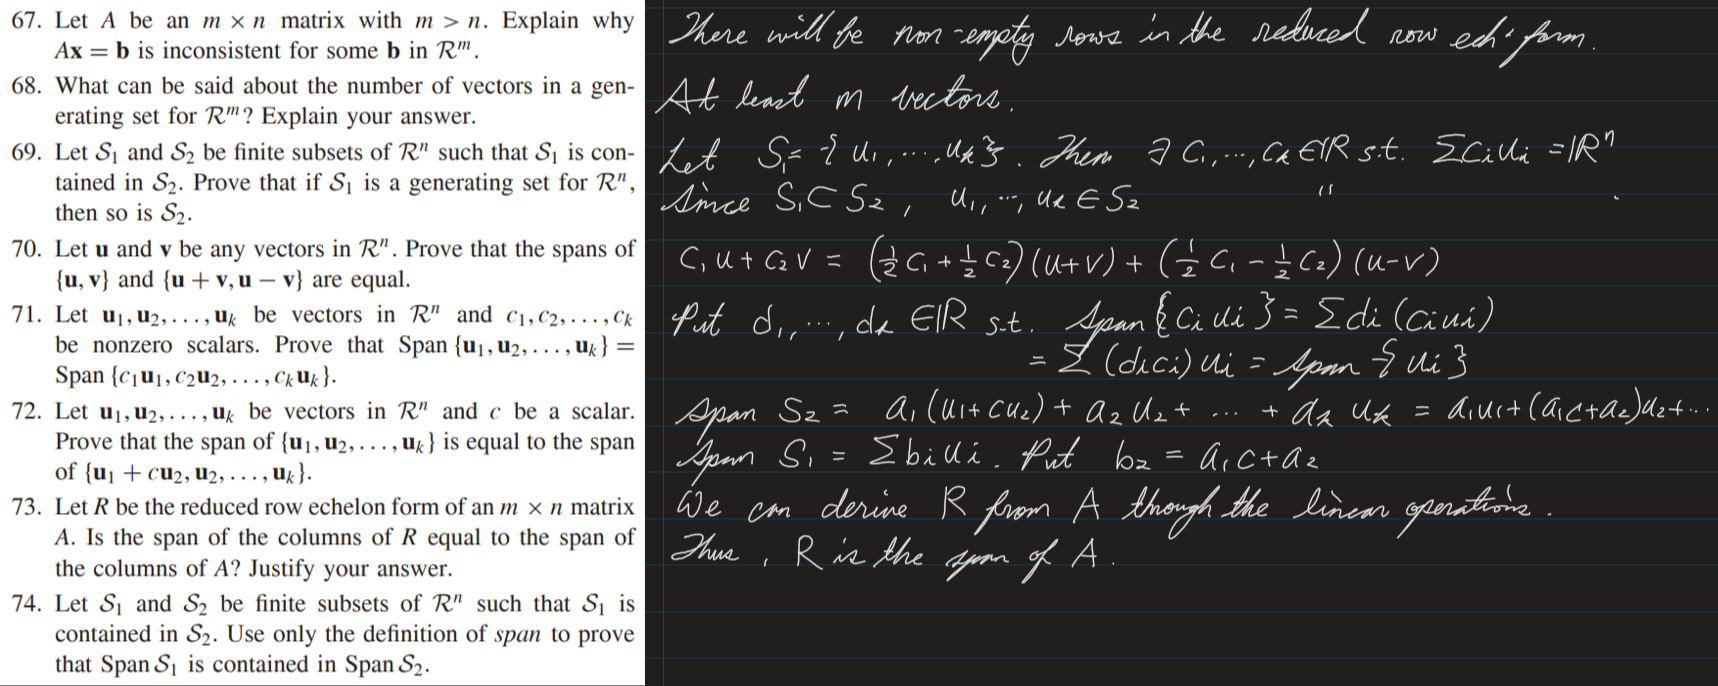 67. Let A be an m × n matrix with m > n. Explain why
Ax = b is inconsistent for some b in R^m.
68. What can be said about the number of vectors in a gen-
erating set for R^m? Explain your answer.
69. Let S₁ and S₂ be finite subsets of R^n such that S₁ is con-
tained in S₂. Prove that if S₁ is a generating set for R^n,
then so is S₂.
70. Let u and v be any vectors in R^n. Prove that the spans of
{u, v} and {u + v, u − v} are equal.
71. Let u₁, u₂, . . . , uₖ be vectors in R^n and c₁, c₂, . . . , cₖ
be nonzero scalars. Prove that Span {u₁, u₂, . . . , uₖ} =
Span {c₁u₁, c₂u₂, . . . , cₖuₖ}.
72. Let u₁, u₂, . . . , uₖ be vectors in R^n and c be a scalar.
Prove that the span of {u₁, u₂, . . . , uₖ} is equal to the span
of {u₁ + cu₂, u₂, . . . , uₖ}.
73. Let R be the reduced row echelon form of an m × n matrix
A. Is the span of the columns of R equal to the span of
the columns of A? Justify your answer.
74. Let S₁ and S₂ be finite subsets of R^n such that S₁ is
contained in S₂. Use only the definition of span to prove
that Span S₁ is contained in Span S₂.
There will be non-empty rows in the reduced row ech. form.
At least m vectors.
Let S₁= {u₁, ..., uₖ}. Then ∃ C₁, ..., Cₖ ∈ ℝ s.t. ΣCᵢuᵢ = ℝ^n
Since S₁ ⊂ S₂, u₁, ..., uₖ ∈ S₂ " .
C₁u + C₂v = (½C₁ + ½C₂)(u+v) + (½C₁ − ½C₂)(u−v)
Put d₁, ..., dₖ ∈ ℝ s.t. Span {Cᵢuᵢ} = Σdᵢ(Cᵢuᵢ)
= Σ(dᵢcᵢ)uᵢ = Span {uᵢ}
Span S₂ = a₁(u₁+cu₂) + a₂u₂ + ... + aₖuₖ = a₁u₁+(a₁c+a₂)u₂+...
Span S₁ = Σbᵢuᵢ. Put b₂ = a₁c+a₂
We can derive R from A though the linear operations.
Thus, R is the span of A.